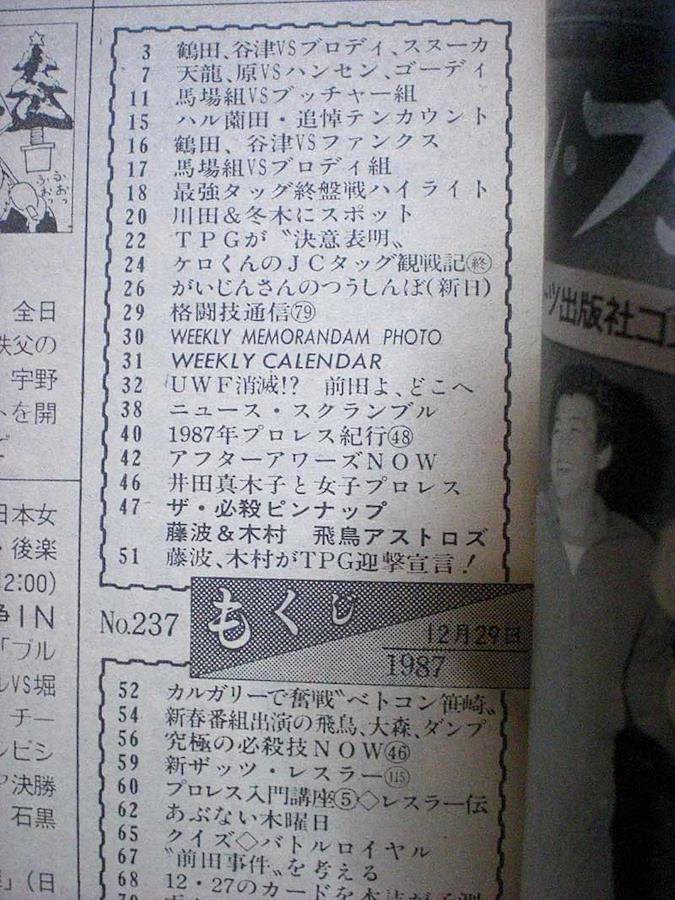 3 鶴田、谷津VSブロディ、スヌーカ
7 天龍、原VSハンセン、ゴーディ
11 馬場組VSブッチャー組
15 ハル薗田・追悼テンカウント
16 鶴田、谷津VSファンクス
17 馬場組VSブロディ組
18 最強タッグ終盤戦ハイライト
20 川田&冬木にスポット
22 TPGが〝決意表明〟
24 ケロくんのJCタッグ観戦記㊡
26 がいじんさんのつうしんぼ(新日)
29 格闘技通信(79)
30 WEEKLY MEMORANDAM PHOTO
31 WEEKLY CALENDAR
32 UWF消滅!? 前田よ、どこへ
38 ニュース・スクランブル
40 1987年プロレス紀行㊽
42 アフターアワーズNOW
46 井田真木子と女子プロレス
47 ザ・必殺ピンナップ
藤波&木村 飛鳥アストロズ
51 藤波、木村がTPG迎撃宣言!
No.237
もくじ
12月29日
1987
52 カルガリーで奮戦〝ベトコン笹崎〟
54 新春番組出演の飛鳥、大森、ダンプ
56 究極の必殺技NOW㊻
59 新ザッツ・レスラー(115)
60 プロレス入門講座⑤◇レスラー伝
62 あぶない木曜日
65 クイズ◇バトルロイヤル
67 〝前田事件〟を考える
68 12・27のカードを本誌が予測
全日
秩父の
宇野
トを開
日本女
・後楽
2:00)
争IN
「ブル
ルVS堀
チー
ルビシ
決勝
石黒
」(日
ツ出版社コ